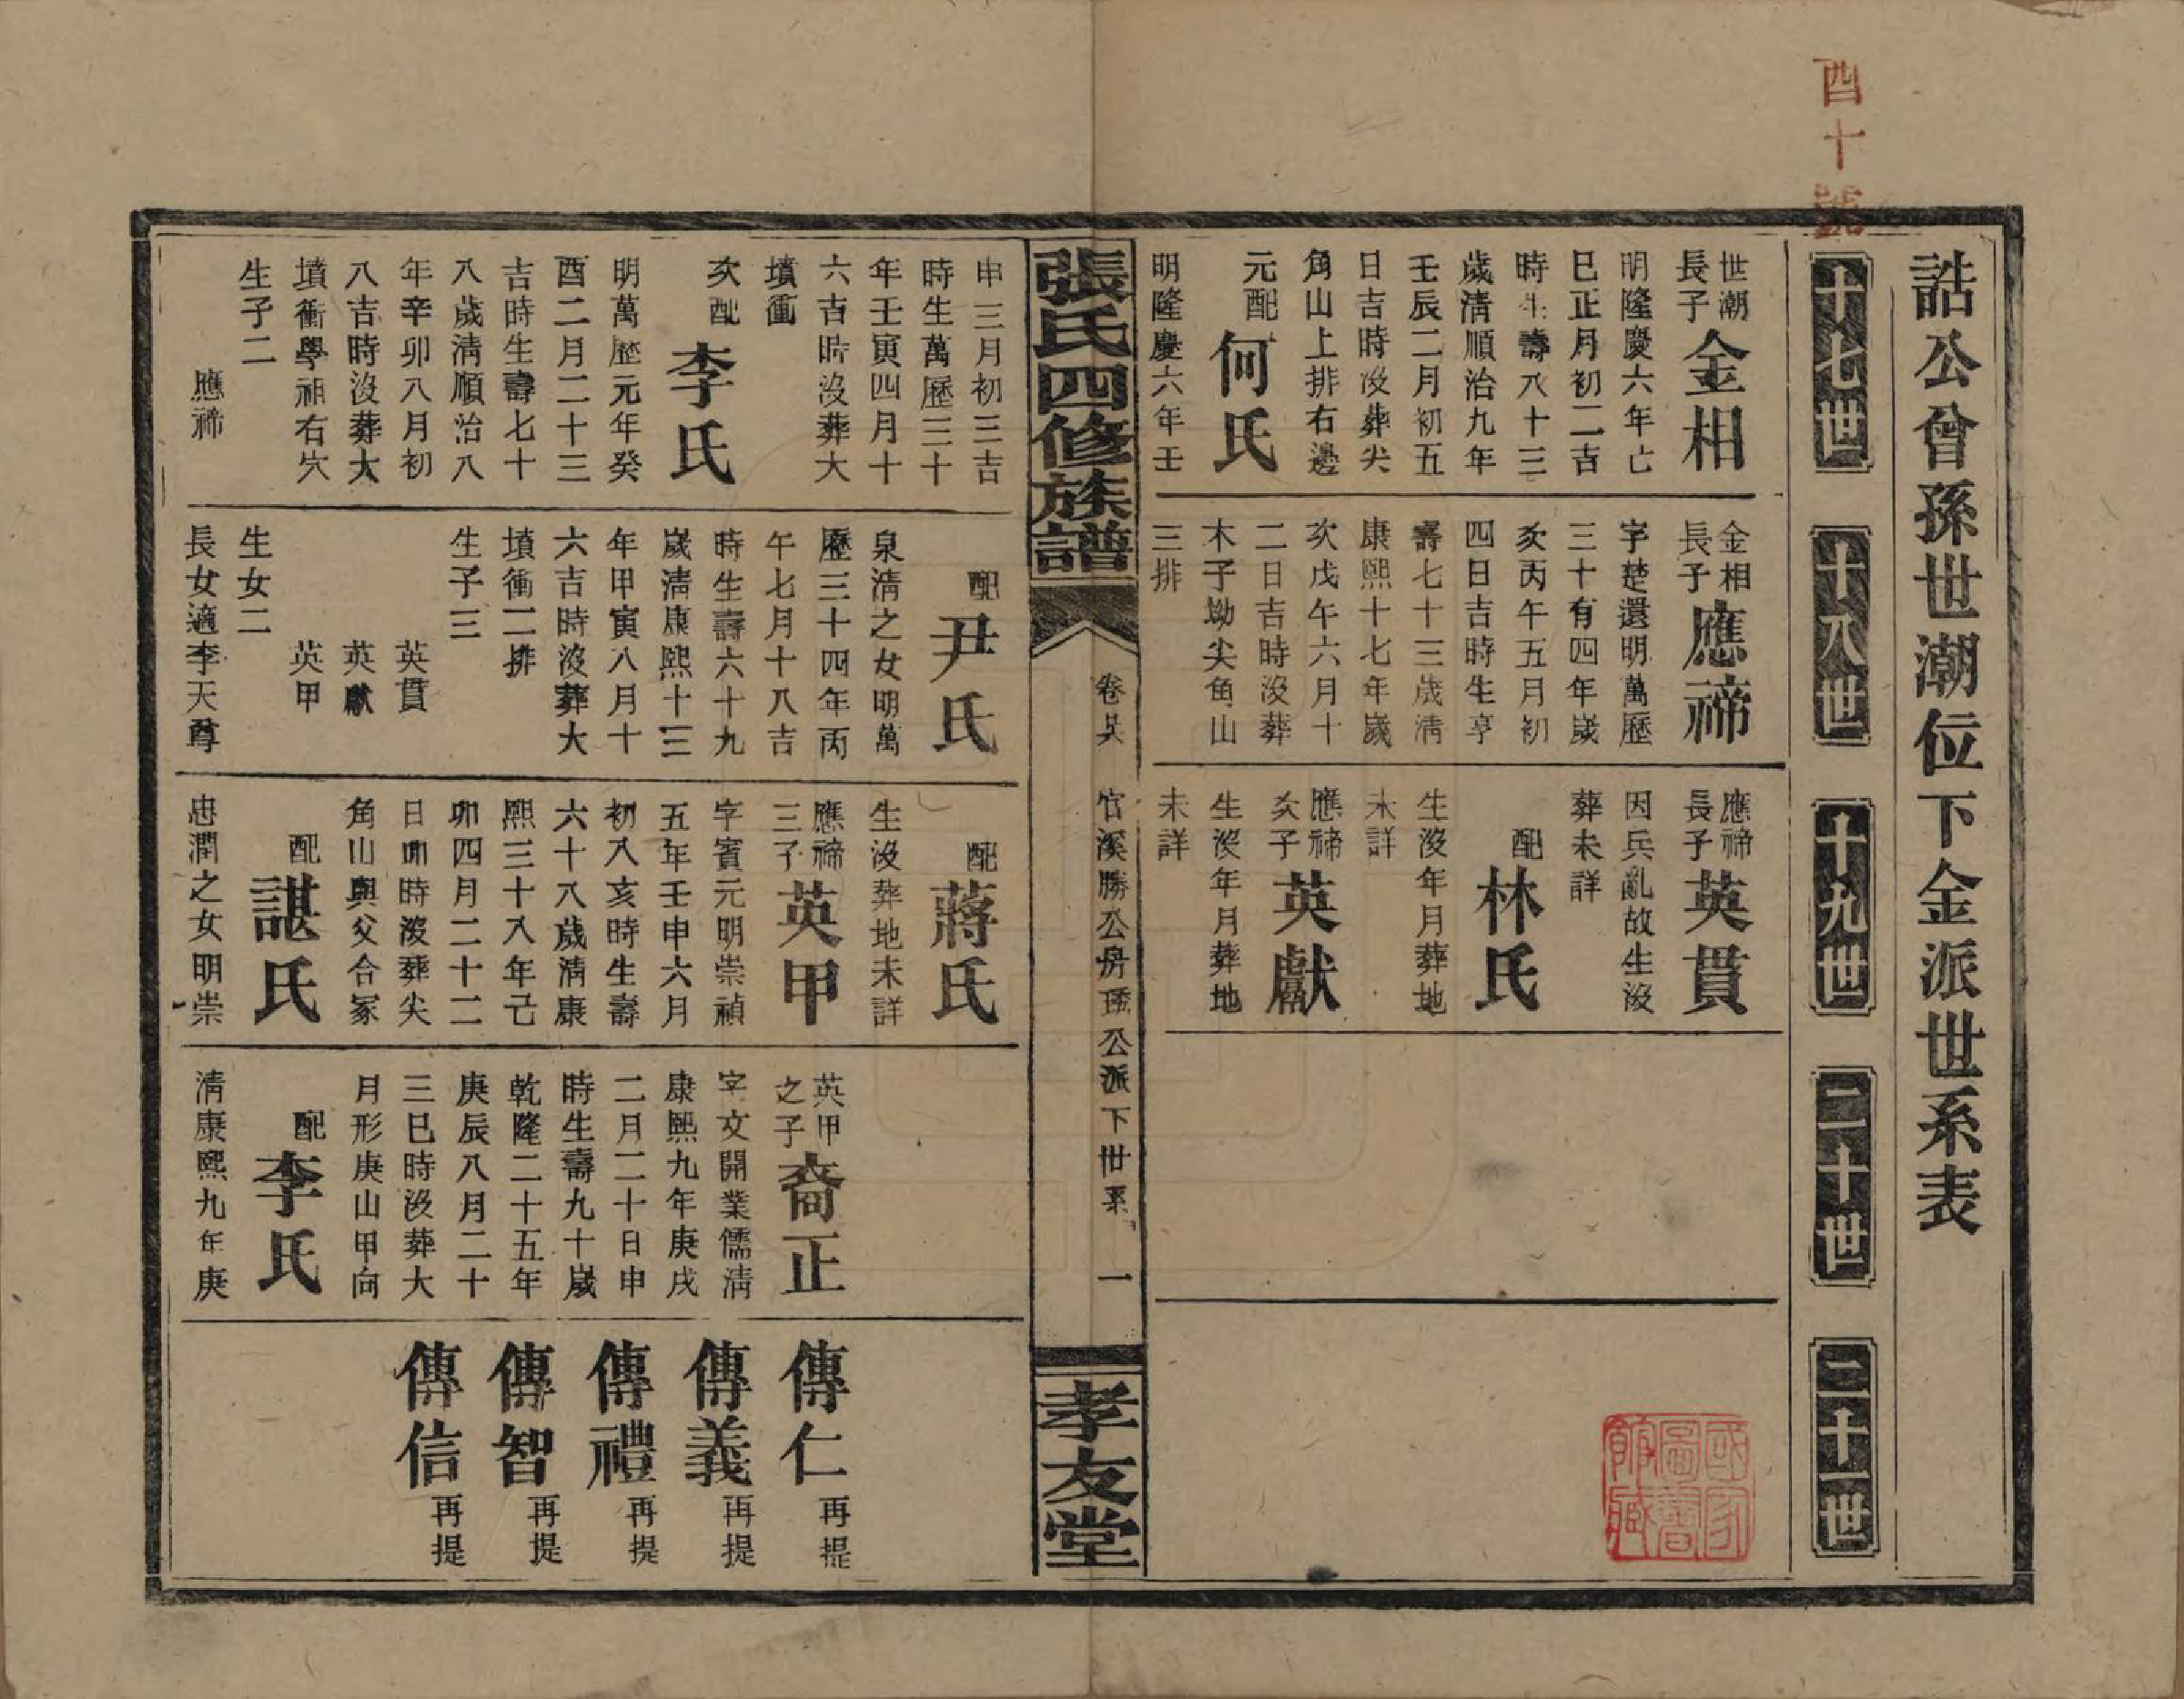 四十號
誥公曾孫世潮位下金派世系表
十七世
十八世
十九世
二十世
二十一世
世潮
長子
金相
明隆慶六年
巳正月初二吉
時生壽八十三
歲清順治九年
壬辰二月初五
日吉時沒葬尖
角山上排右邊
元配
何氏
明隆慶六年壬
金相
長子
應禘
字楚還明萬歷
三十有四年歲
次丙午五月初
四日吉時生享
壽七十三歲清
康熙十七年歲
次戊午六月十
二日吉時沒葬
木子坳尖角山
三排
應禘
長子
英貫
因兵亂故生沒
葬未詳
配
林氏
生沒年月葬地
未詳
應禘
次子
英獻
生沒年月葬地
未詳
張氏四修族譜
卷 官溪勝公房 公派下世系 一
孝友堂
申三月初三吉
時生萬歷三十
年壬寅四月十
六吉時沒葬大
墳衝
次配
李氏
明萬歷元年癸
酉二月二十三
吉時生壽七十
八歲清順治八
年辛卯八月初
八吉時沒葬大
墳衝學祖右穴
生子二
應禘
配
尹氏
泉清之女明萬
歷三十四年丙
午七月十八吉
時生壽六十九
歲清康熙十三
年甲寅八月十
六吉時沒葬大
墳衝二排
生子三
英貫
英獻
英甲
生女二
長女適李天尊
配
蔣氏
生沒葬地未詳
應禘
三子
英甲
字賓元明崇禎
五年壬申六月
初八亥時生壽
六十八歲清康
熙三十八年己
卯四月二十二
日卯時沒葬尖
角山與父合冢
配
諶氏
忠潤之女明崇
英甲
之子
裔正
字文開業儒清
康熙九年庚戌
二月二十日申
時生壽九十歲
乾隆二十五年
庚辰八月二十
三巳時沒葬大
月形庚山甲向
配
李氏
清康熙九年庚
傳仁 再提
傳義 再提
傳禮 再提
傳智 再提
傳信 再提
國家圖書館藏